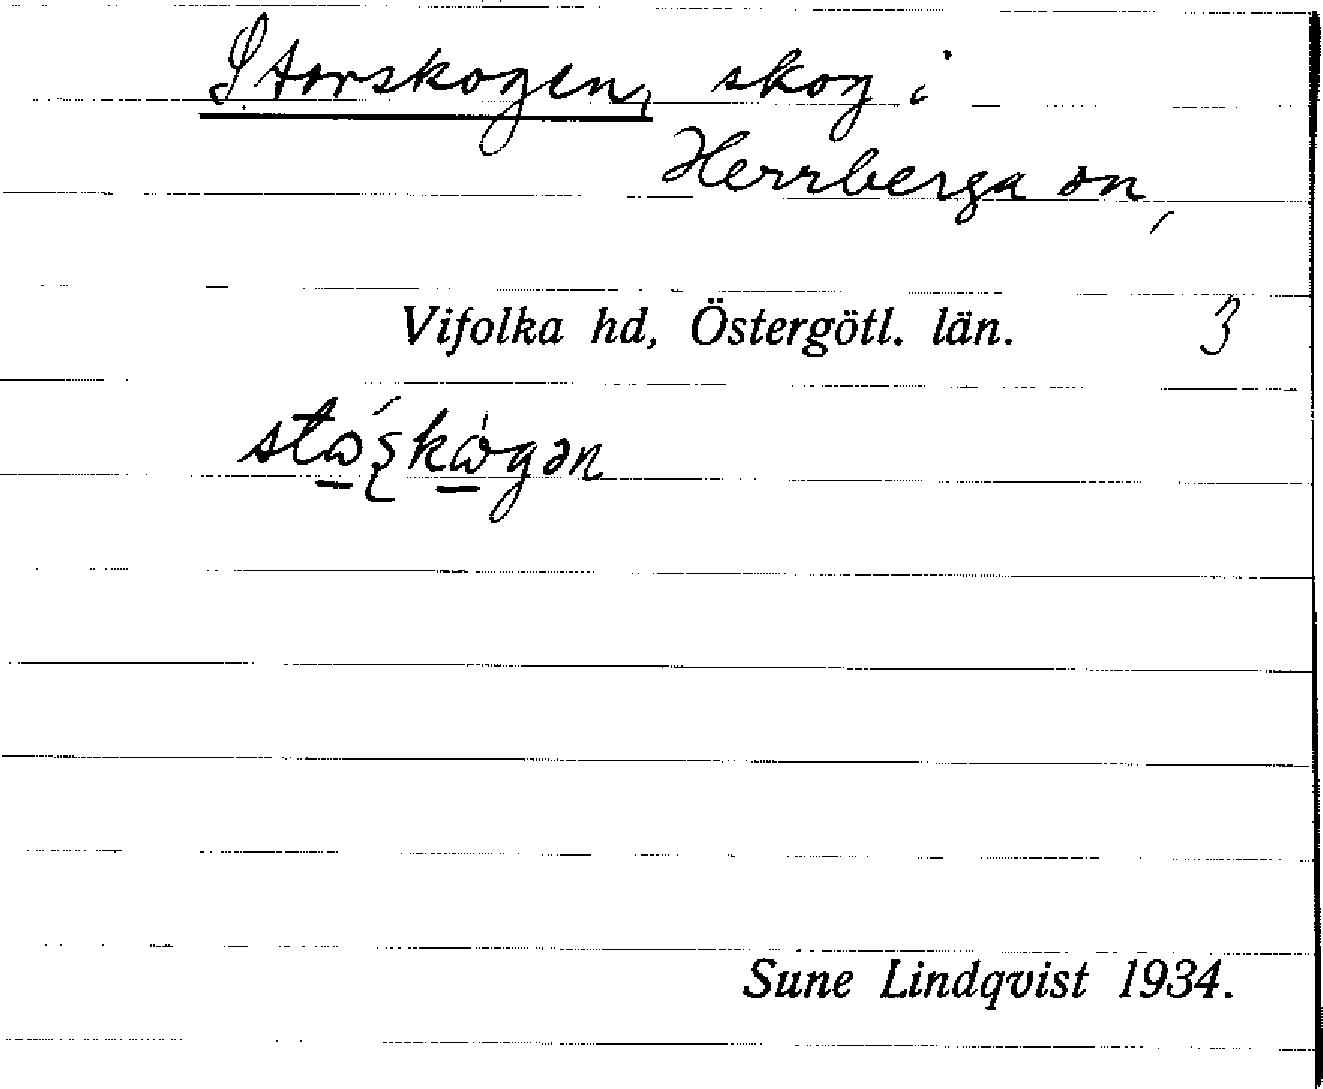 Storskogen, skog i
Herrberga sn,
Vifolka hd, Östergötl. län. 3
stώ̱ʂkὼ̱gən
Sune Lindqvist 1934.